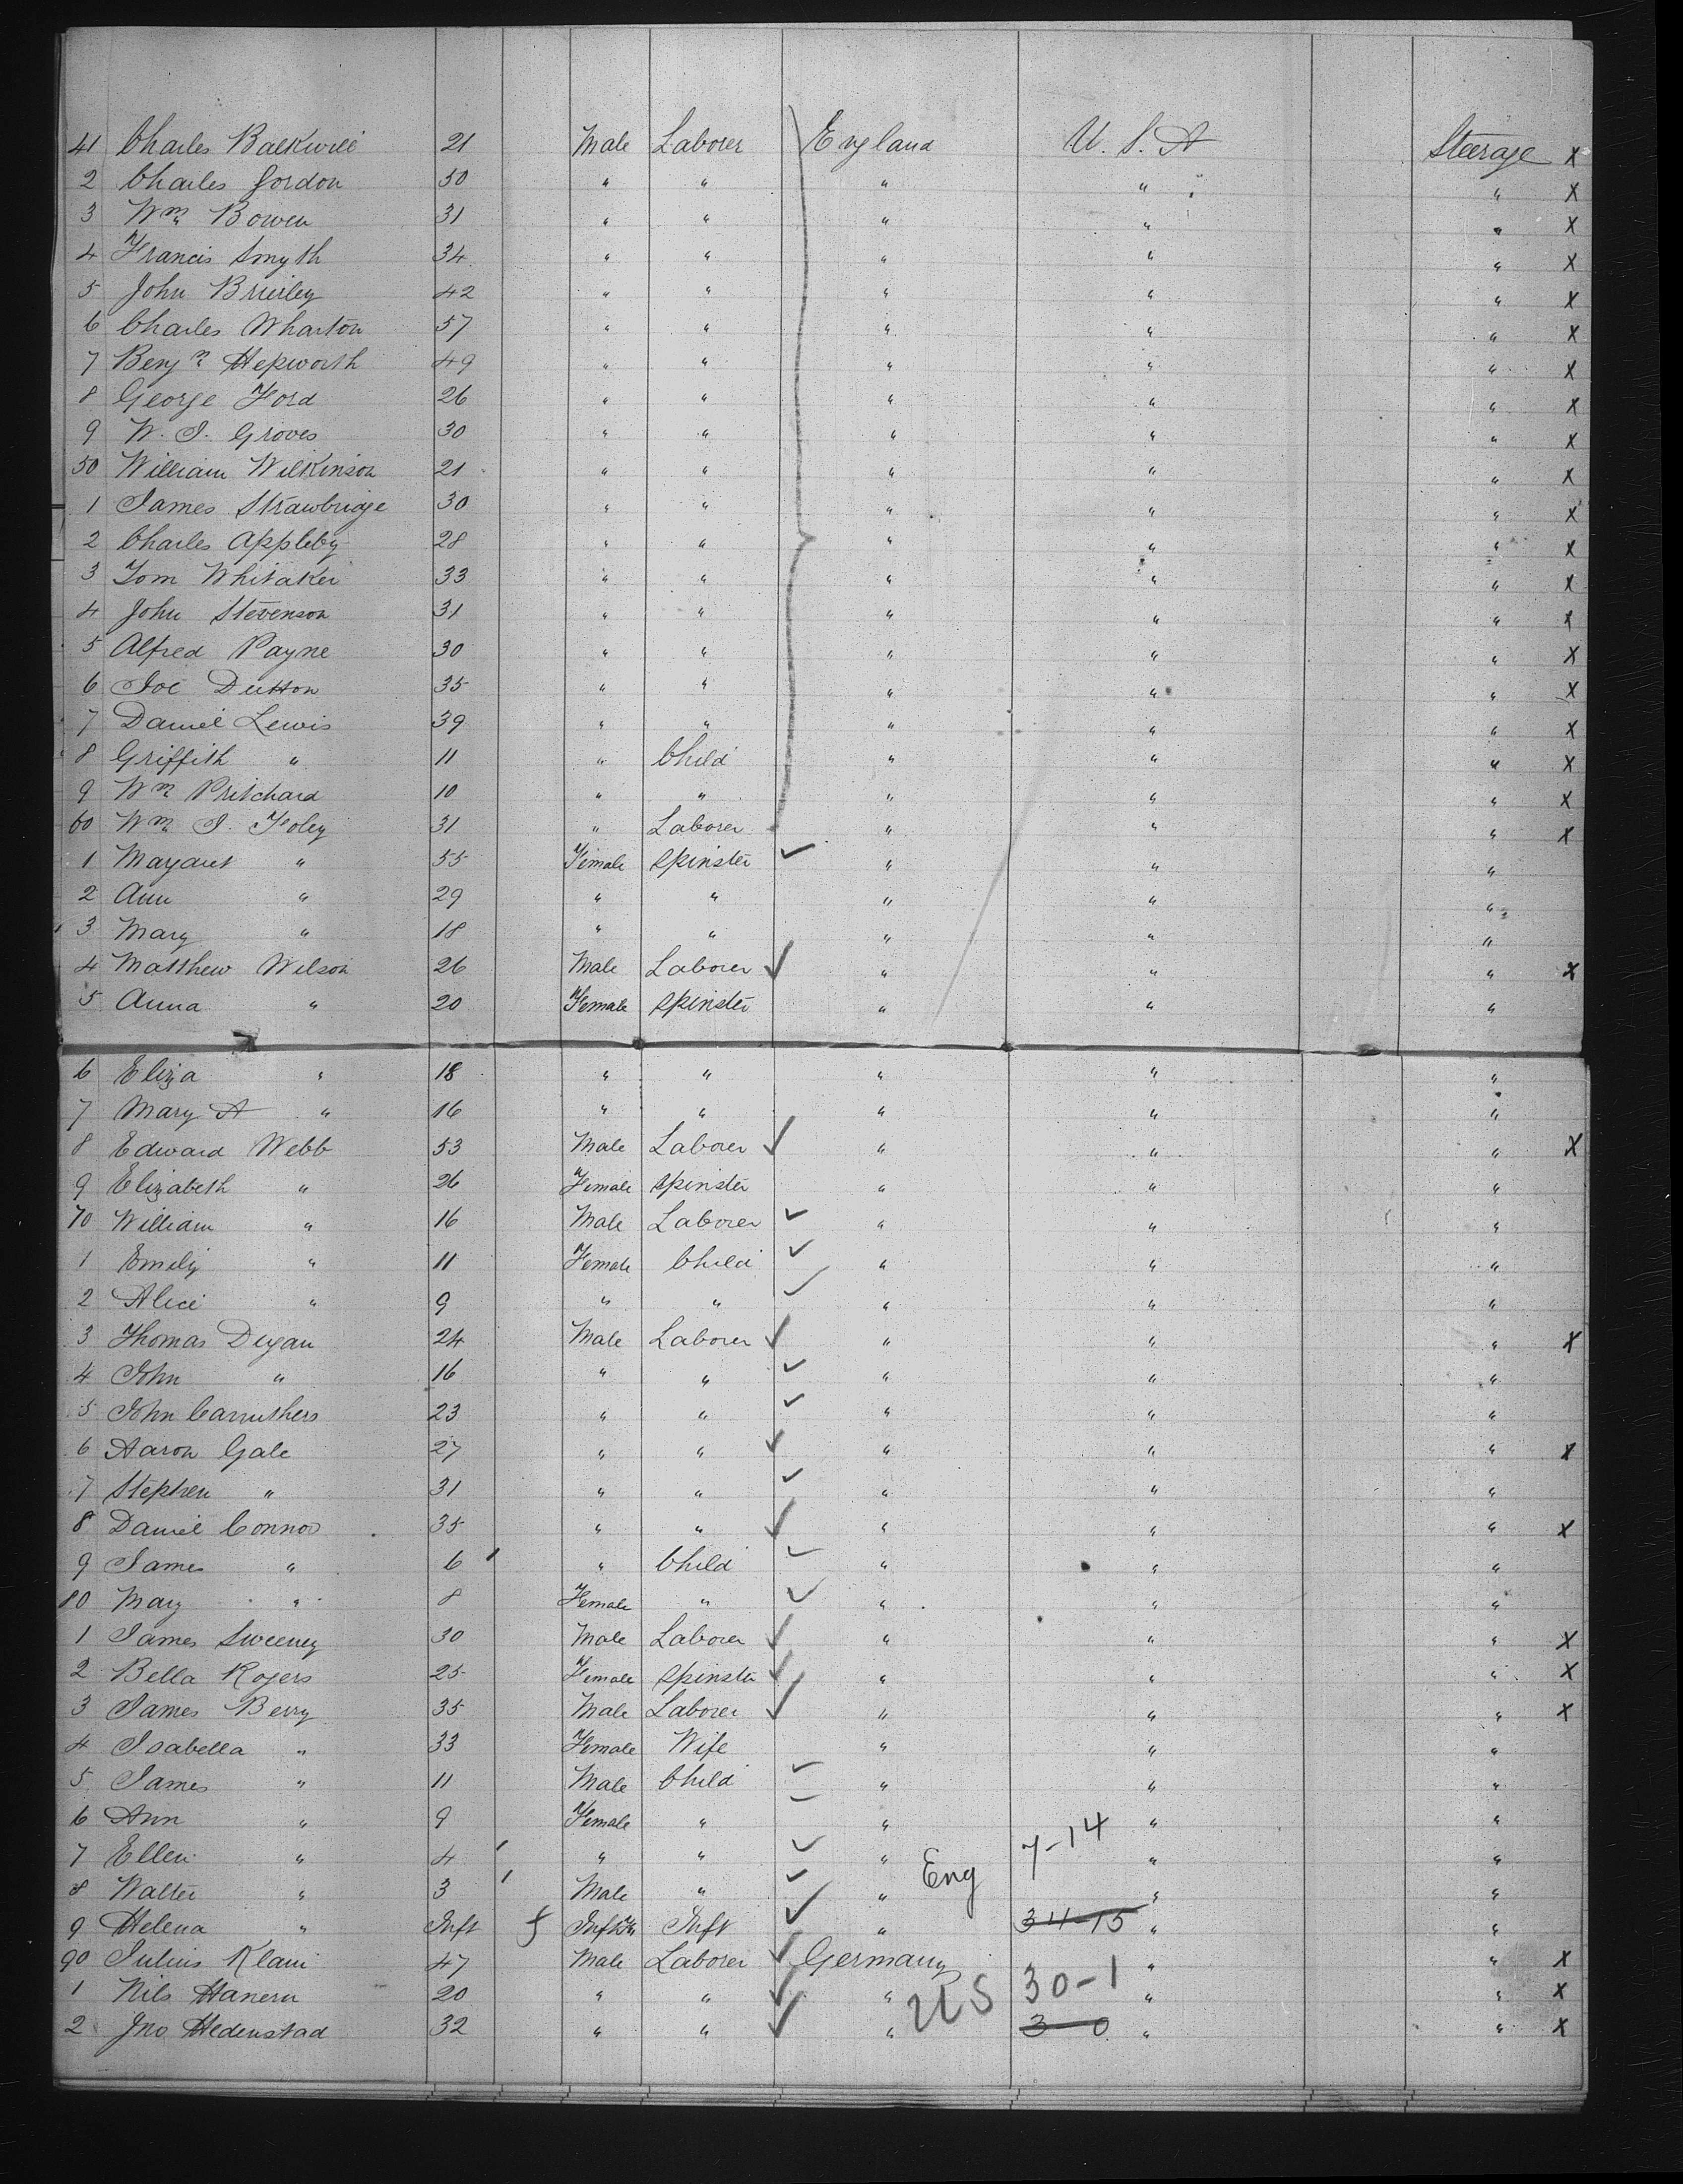 41 Charles Balkwill 21 Male Laborer England U.S.A Steerage X
2 Charles Gordon 50 " " " " " X
3 Wm Bowen 31 " " " " " X
4 Francis Smyth 34 " " " " " X
5 John Brierley 42 " " " " " X
6 Charles Wharton 57 " " " " " X
7 Benjn Hepworth 49 " " " " " X
8 George Ford 26 " " " " " X
9 W. J. Groves 30 " " " " " X
50 William Wilkinson 21 " " " " " X
1 James Strawbridge 30 " " " " " X
2 Charles Appleby 28 " " " " " X
3 Tom Whitaker 33 " " " " " X
4 John Stevenson 31 " " " " " X
5 Alfred Payne 30 " " " " " X
6 Joe Dutton 35 " " " " " X
7 Daniel Lewis 39 " " " " " X
8 Griffith " 11 " Child " " " X
9 Wm Pritchard 10 " " " " " X
60 Wm J. Foley 31 " Laborer " " " X
1 Margaret " 55 Female Spinster " " "
2 Ann " 29 " " " " "
3 Mary " 18 " " " " "
4 Matthew Wilson 26 Male Laborer " " " X
5 Anna " 20 Female Spinster " " "
6 Eliza " 18 " " " " "
7 Mary A " 16 " " " " "
8 Edward Webb 53 Male Laborer " " " X
9 Elizabeth " 26 Female Spinster " " "
70 William " 16 Male Laborer " " "
1 Emily " 11 Female Child " " "
2 Alice " 9 " " " " "
3 Thomas Dugan 24 Male Laborer " " " X
4 John " 16 " " " " "
5 John Carruthers 23 " " " " "
6 Aaron Gale 27 " " " " " X
7 Stephen " 31 " " " " "
8 Daniel Connor 35 " " " " " X
9 James " 6 " Child " " "
80 Mary " 8 Female " " " "
1 James Sweeney 30 Male Laborer " " " X
2 Bella Rogers 25 Female Spinster " " " X
3 James Berry 35 Male Laborer " " " X
4 Isabella " 33 Female Wife " " "
5 James " 11 Male Child " " "
6 Ann " 9 Female " " " "
7 Ellen " 4 " " " 7-14 " "
8 Walter " 3 Male " " Eng " "
9 Helena " Inft Inft " 34-15 " "
90 Julius 47 Male Laborer Germany " " X
1 Nils 20 " " " US 30-1 " " X
2 Jno Hedenstad 32 " " " 3-0 " " X